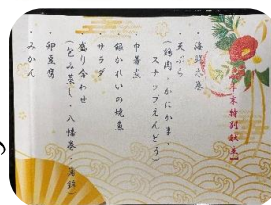 年末特別献立
・海鮮太巻
・天ぷら
(鶏肉・かにかま・
スナップえんどう)
・巾着煮
・銀かれいの焼魚
・サラダ
・盛り合わせ
(なみ蒸し・八幡巻・
・卵豆腐
・みかん